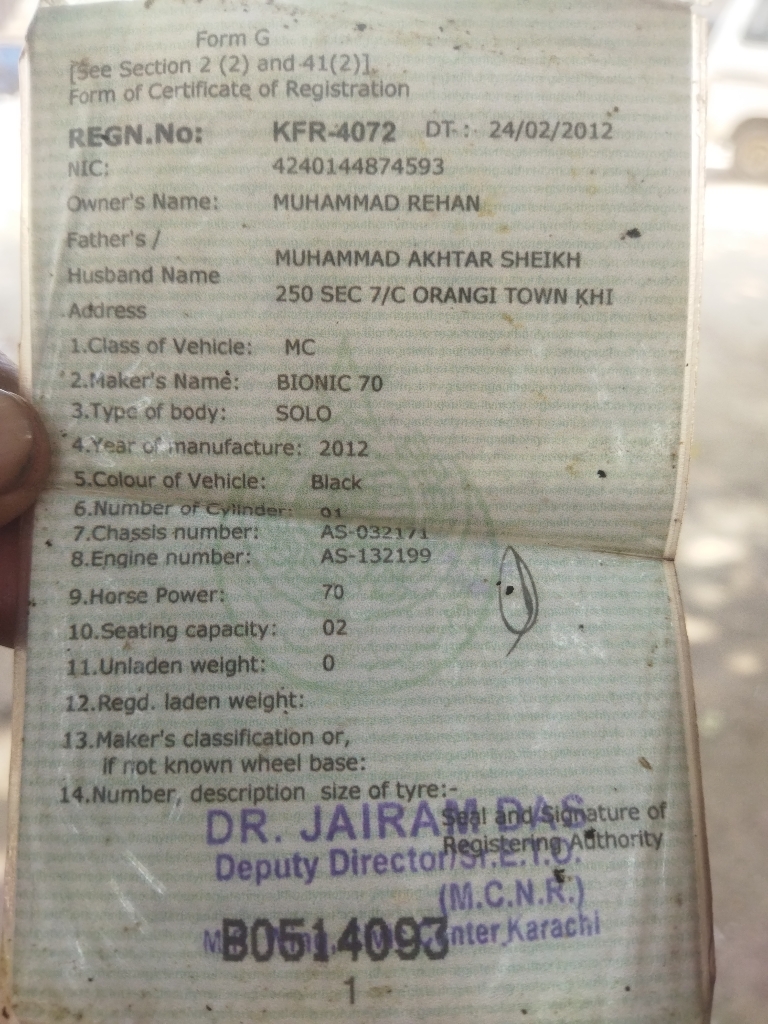 Form G
[See Section 2 (2) and 41(2)].
Form of Certificate of Registration
REGN.No: KFR-4072 DT.: 24/02/2012
NIC: 4240144874593
Owner's Name: MUHAMMAD REHAN
Father's /
MUHAMMAD AKHTAR SHEIKH
Husband Name
250 SEC 7/C ORANGI TOWN KHI
Address
1.Class of Vehicle: MC
2.Maker's Name: BIONIC 70
3.Type of body: SOLO
4.Year of manufacture: 2012
5.Colour of Vehicle: Black
6.Number of Cylinder: 01
7.Chassis number: AS-032171
8.Engine number: AS-132199
9.Horse Power: 70
10.Seating capacity: 02
11.Unladen weight: 0
12.Regd. laden weight:
13.Maker's classification or,
if not known wheel base:
14.Number, description size of tyre:-
Seal and Signature of
DR. JAIRAM DAS
Registering Authority
Deputy Director/Sr.E.T.O.
(M.C.N.R.)
Karachi
B0514093
1